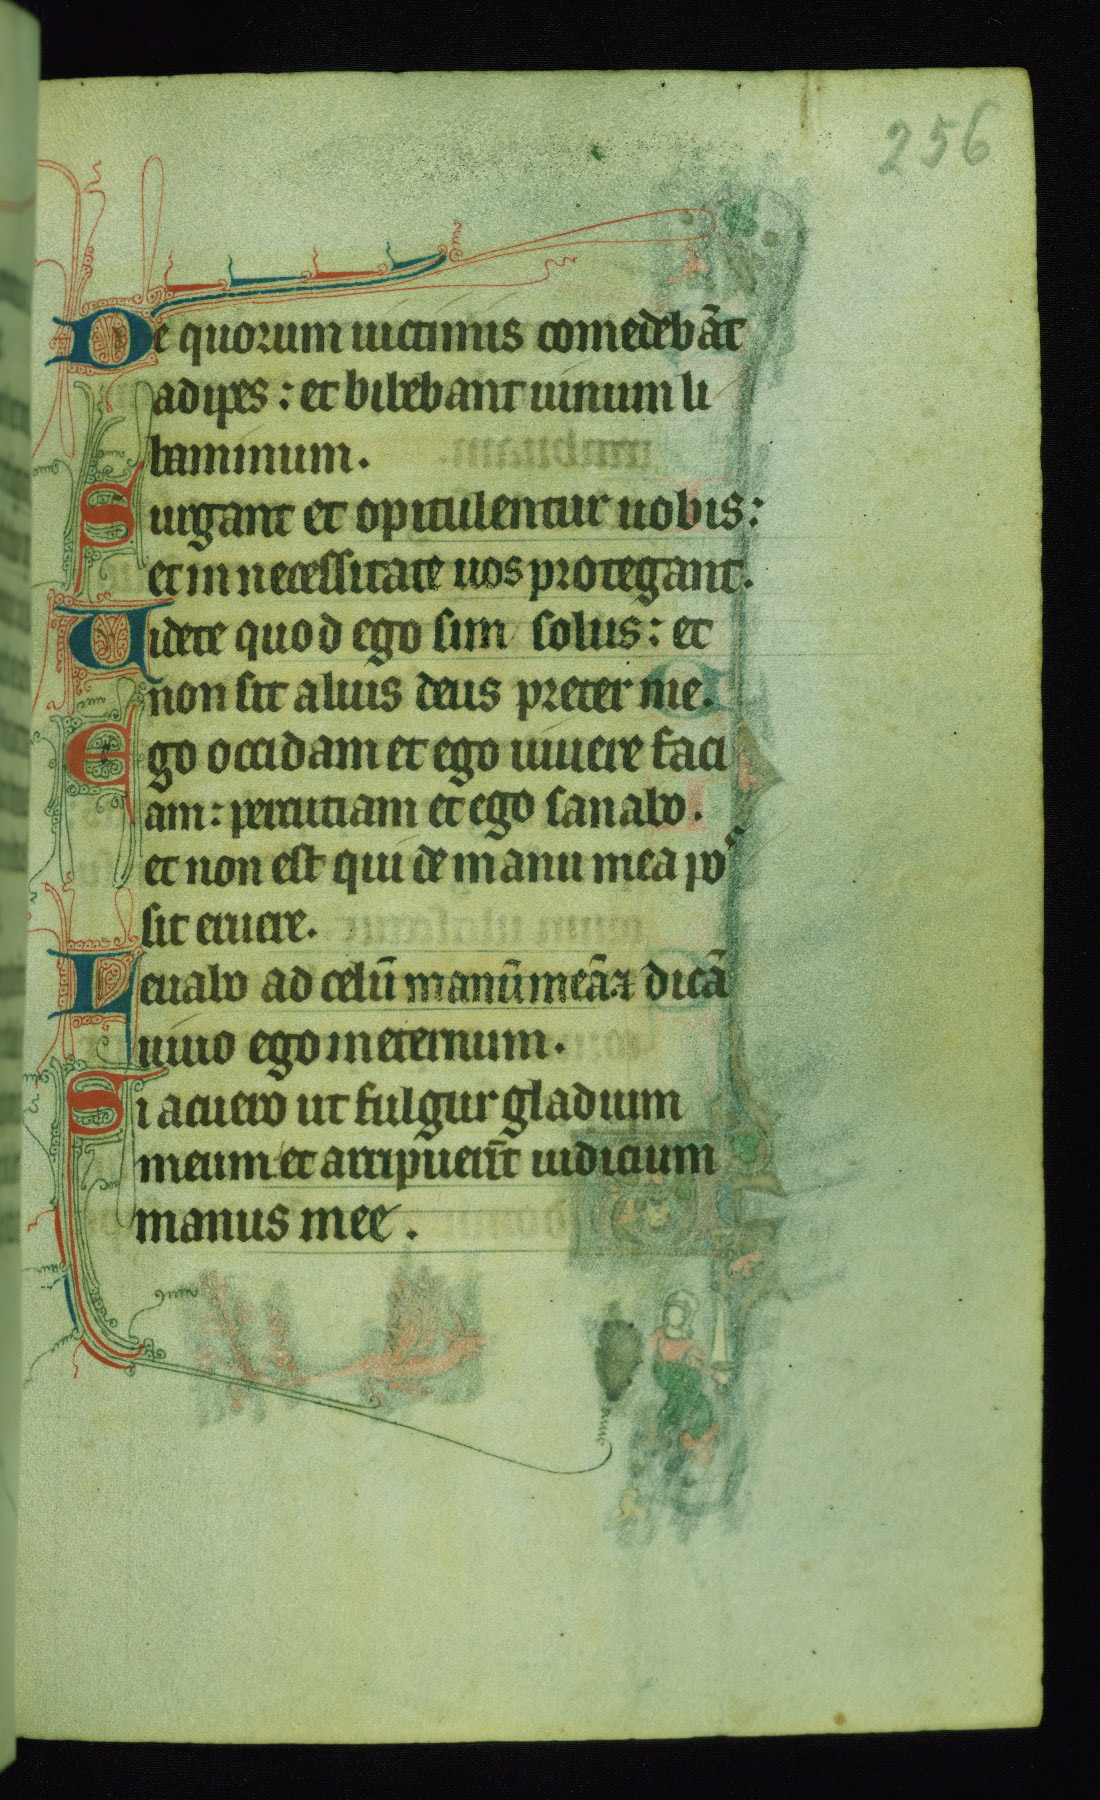 256
De quorum uictimis comedebāt
adipes : et bibebant uinum li
baminum.
Surgant et opitulentur uobis :
et in necessitate uos protegant.
Uidete quod ego sim solus : et
non sit alius deus preter me.
Ego occidam et ego uiuere faci
am : percutiam et ego sanabo.
et non est qui de manu mea pos
sit eruere.
Leuabo ad celū manū meā ⁊ dicā
uiuo ego in eternum.
Si acuero ut fulgur gladium
meum et arripuerīt iudicium
manus mee.